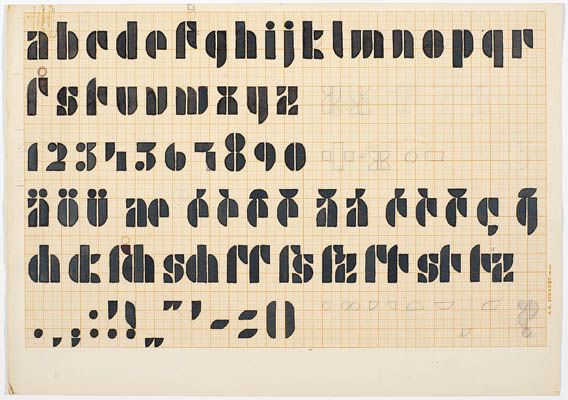 a b c d e f g h i j k l m n o p q r
ſ s t u v w x y z
1 2 3 4 5 6 7 8 9 0
ä ö ü ae é è ç
ch ck ſch sch ff ſs ſz ft st tz
. , ; : ' ! „ ” ' - =